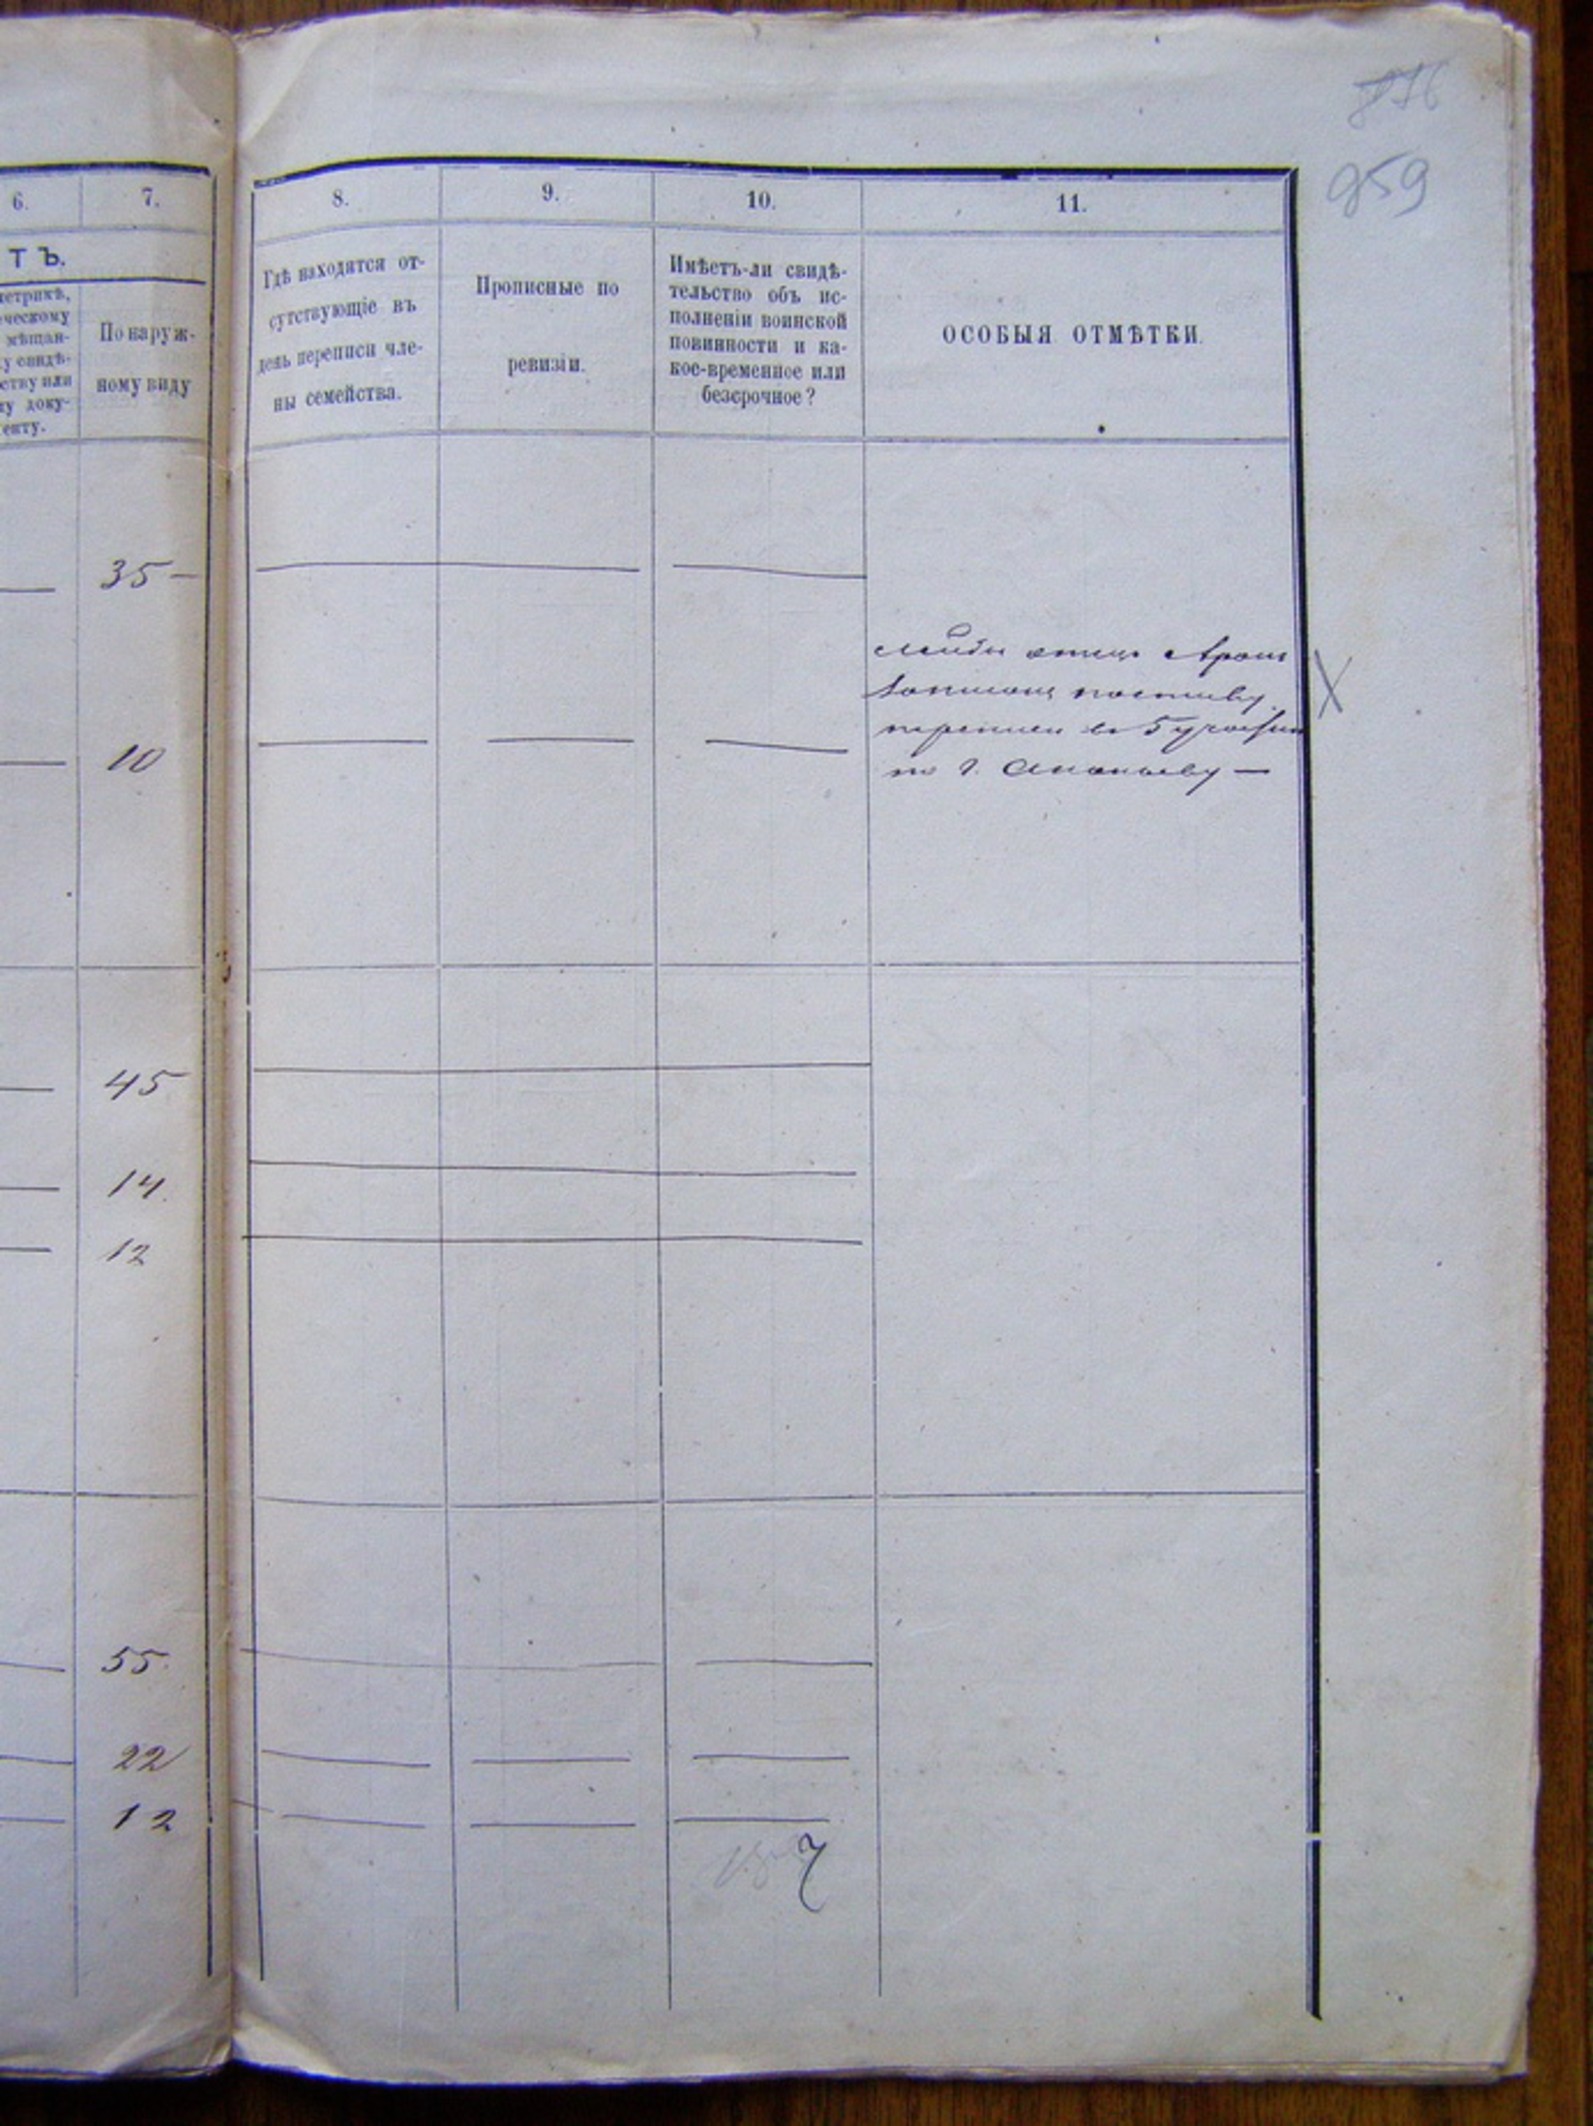 876
959
6.
7.
8.
9.
10.
11.
ТЪ.
метрикѣ,
ческому
мѣщан-
у свидѣ-
ству или
му доку-
енту.
По наруж-
ному виду
Гдѣ находятся от-
сутствующіе въ
день переписи чле-
ны семейства.
Прописные по
ревизіи.
Имѣетъ-ли свидѣ-
тельство объ ис-
полненіи воинской
повинности и ка-
кое-временное или
безсрочное?
ОСОБЫЯ ОТМѢТКИ.
35 —
отецъ
10
переписи 5
по г. Ананьеву —
X
45
14.
12
55
22
12